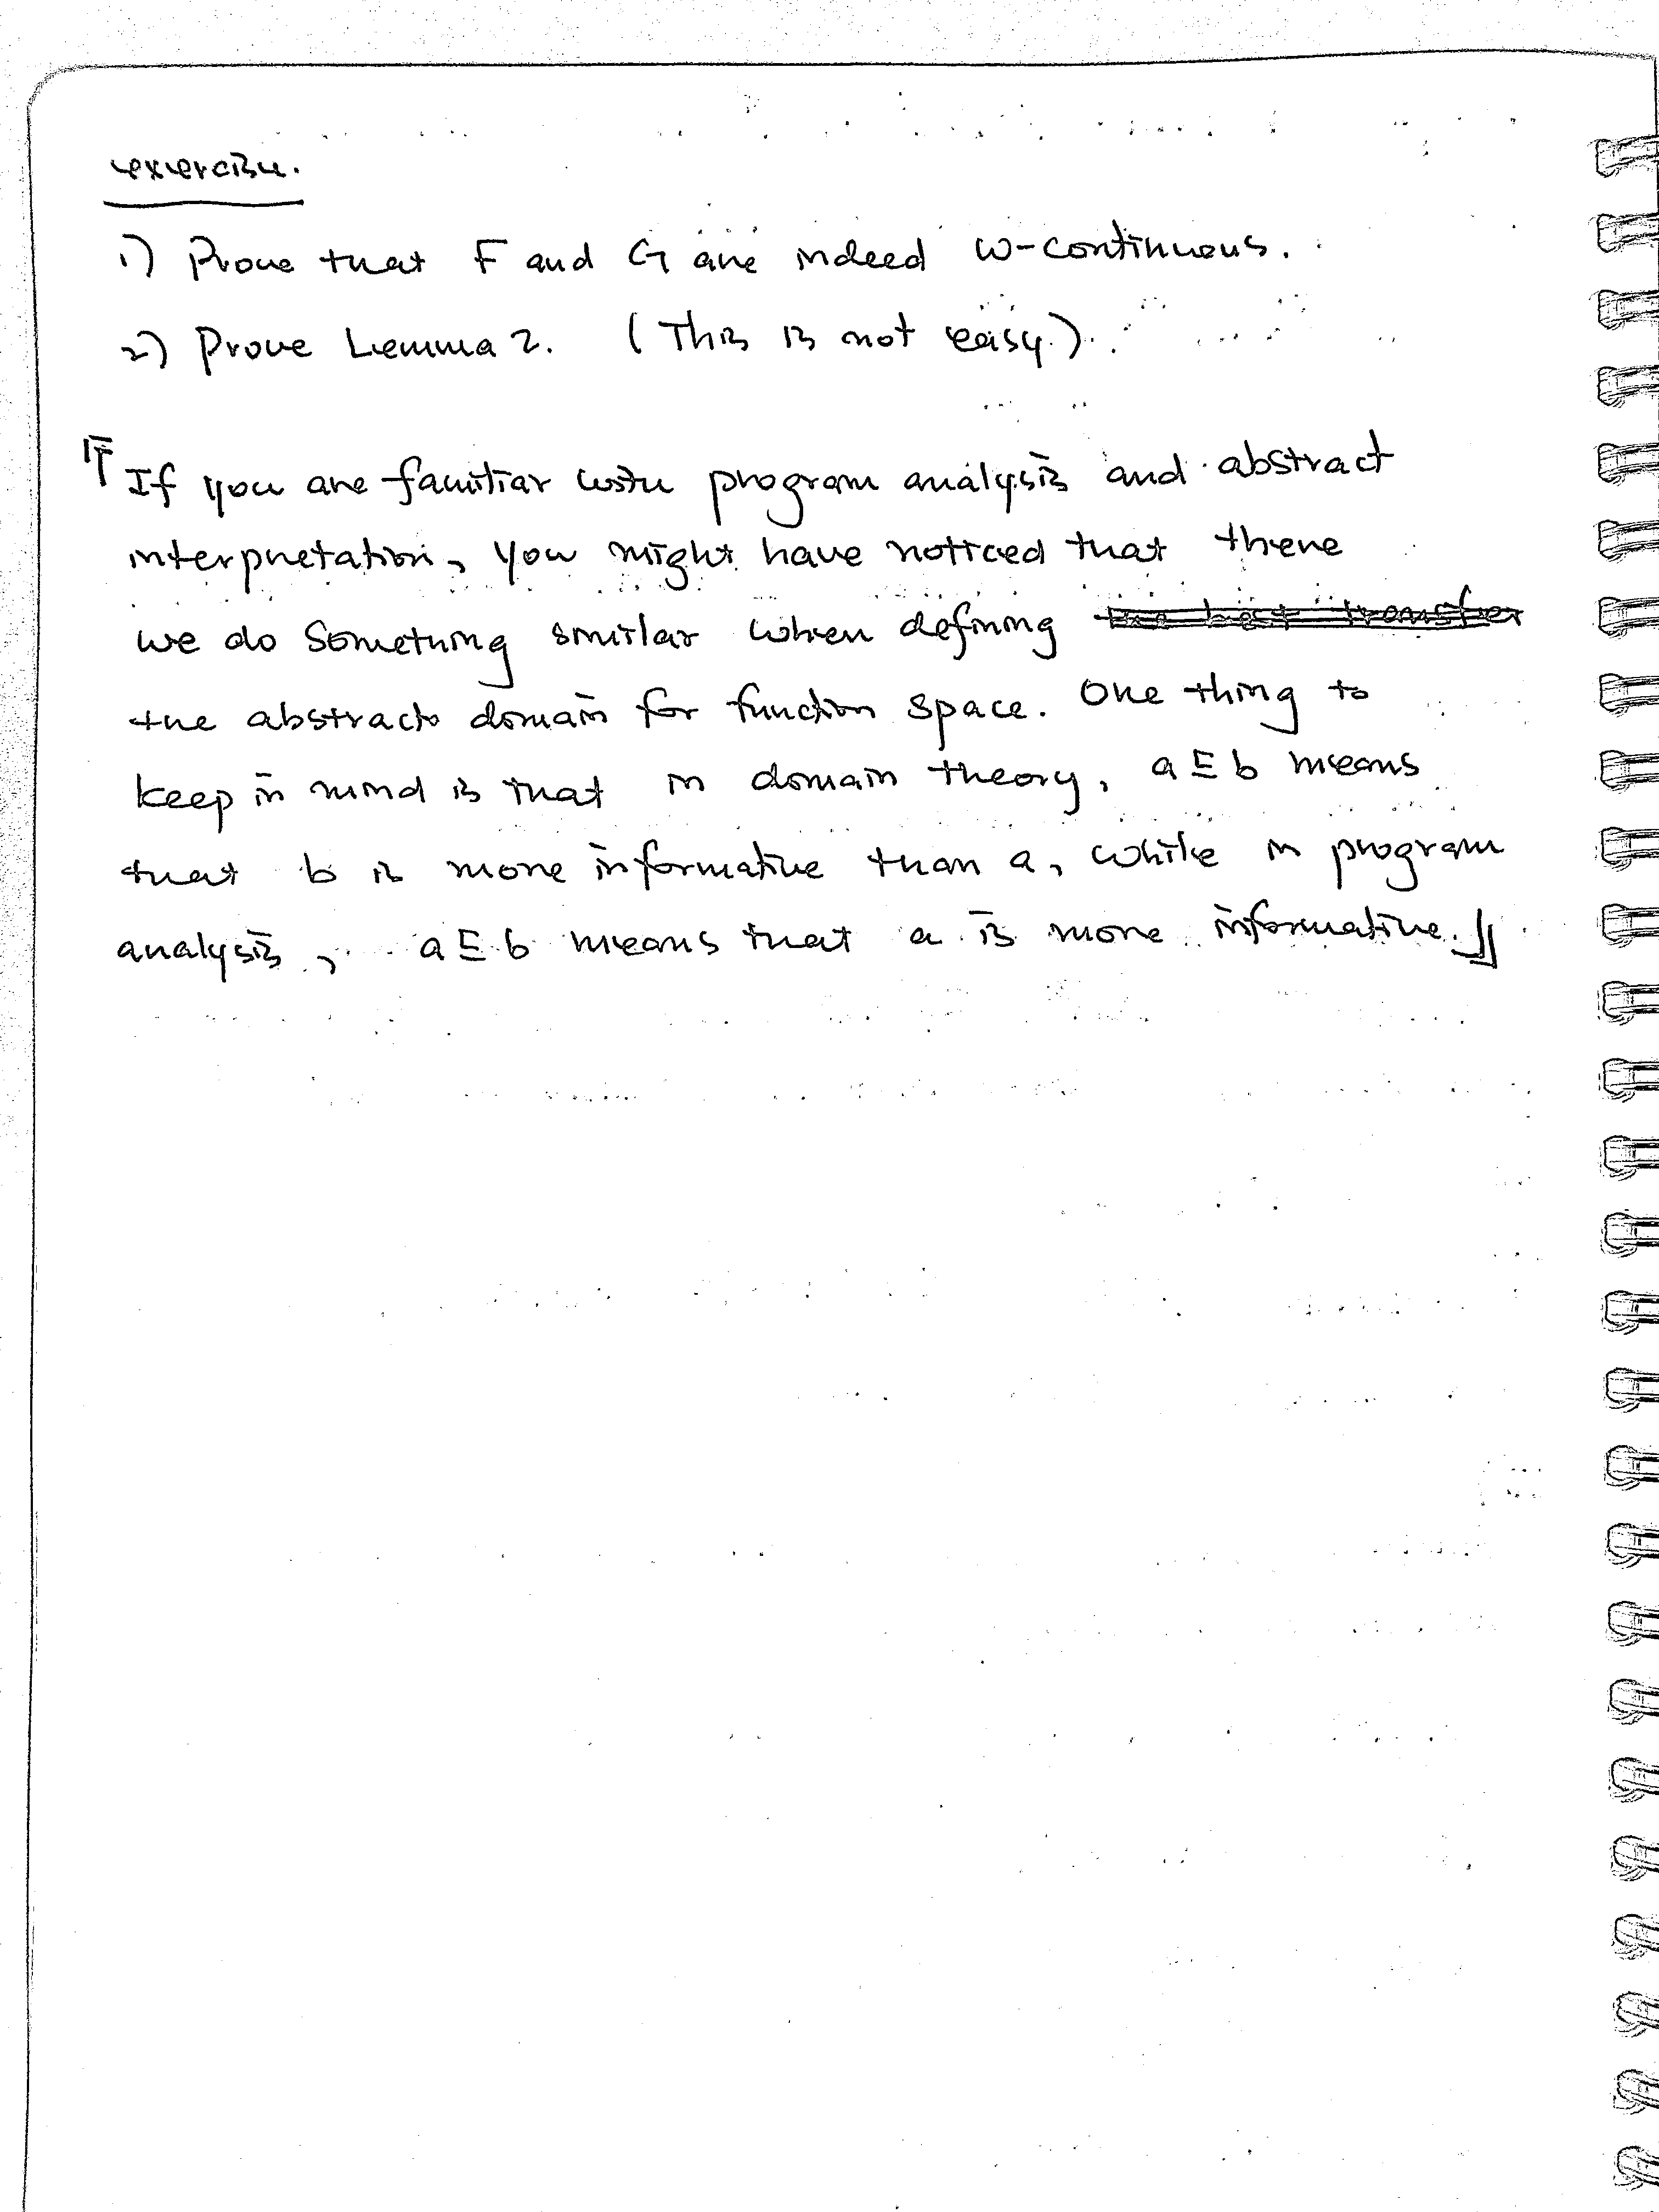 exercise.
1) Prove that F and G are indeed ω-continuous.
2) Prove Lemma 2. (This is not easy.)
『If you are familiar with program analysis and abstract
interpretation, you might have noticed that there
we do something similar when defining the best transfer
the abstract domain for function space. One thing to
keep in mind is that in domain theory, a ⊑ b means
that b is more informative than a, while in program
analysis, a ⊑ b means that a is more informative.』